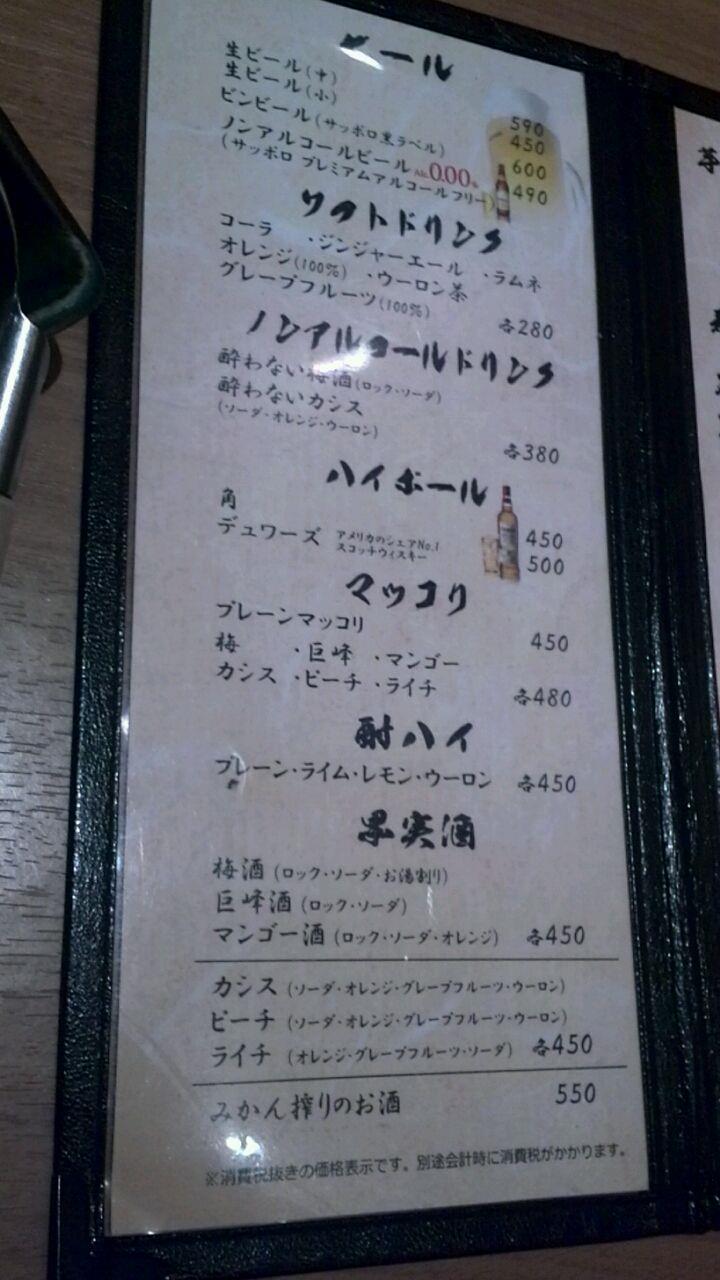 ビール
生ビール(中)
590
生ビール(小)
450
ビンビール(サッポロ黒ラベル)
600
ノンアルコールビール Alc.0.00%
490
(サッポロ プレミアムアルコールフリー)
ソフトドリンク
コーラ ・ジンジャーエール ・ラムネ
オレンジ(100%) ・ウーロン茶
グレープフルーツ(100%)
各280
ノンアルコールドリンク
酔わない梅酒(ロック・ソーダ)
酔わないカシス
(ソーダ・オレンジ・ウーロン)
各380
ハイボール
角
450
デュワーズ アメリカのシェアNo.1
スコッチウィスキー
500
マッコリ
プレーンマッコリ
450
梅 ・巨峰 ・マンゴー
カシス ・ピーチ ・ライチ
各480
酎ハイ
プレーン・ライム・レモン・ウーロン 各450
果実酒
梅酒(ロック・ソーダ・お湯割り)
巨峰酒(ロック・ソーダ)
マンゴー酒(ロック・ソーダ・オレンジ) 各450
カシス(ソーダ・オレンジ・グレープフルーツ・ウーロン)
ピーチ(ソーダ・オレンジ・グレープフルーツ・ウーロン)
ライチ(オレンジ・グレープフルーツ・ソーダ) 各450
みかん搾りのお酒 550
※消費税抜きの価格表示です。別途会計時に消費税がかかります。